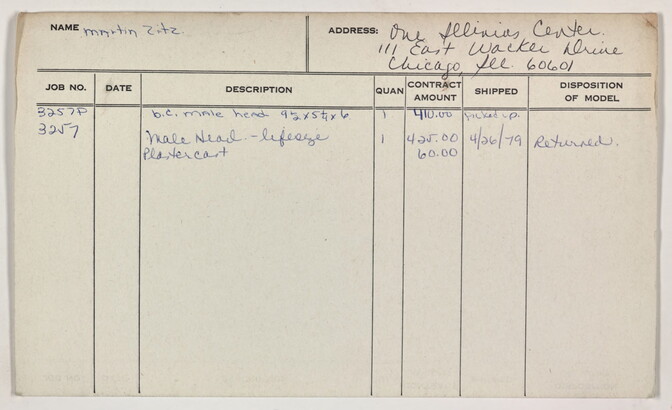 NAME Martin Zitz.
ADDRESS: One Illinias Center.
111 East Wacker Drive
Chicago, Ill. 60601
JOB NO. DATE DESCRIPTION QUAN CONTRACT AMOUNT SHIPPED DISPOSITION OF MODEL
3257P b.c. male head 9½ x 5½ x 6 1 410.00 picked up.
3257 Male Head. - lifesize 1 425.00 4/26/79 Returned.
Plaster cast 60.00